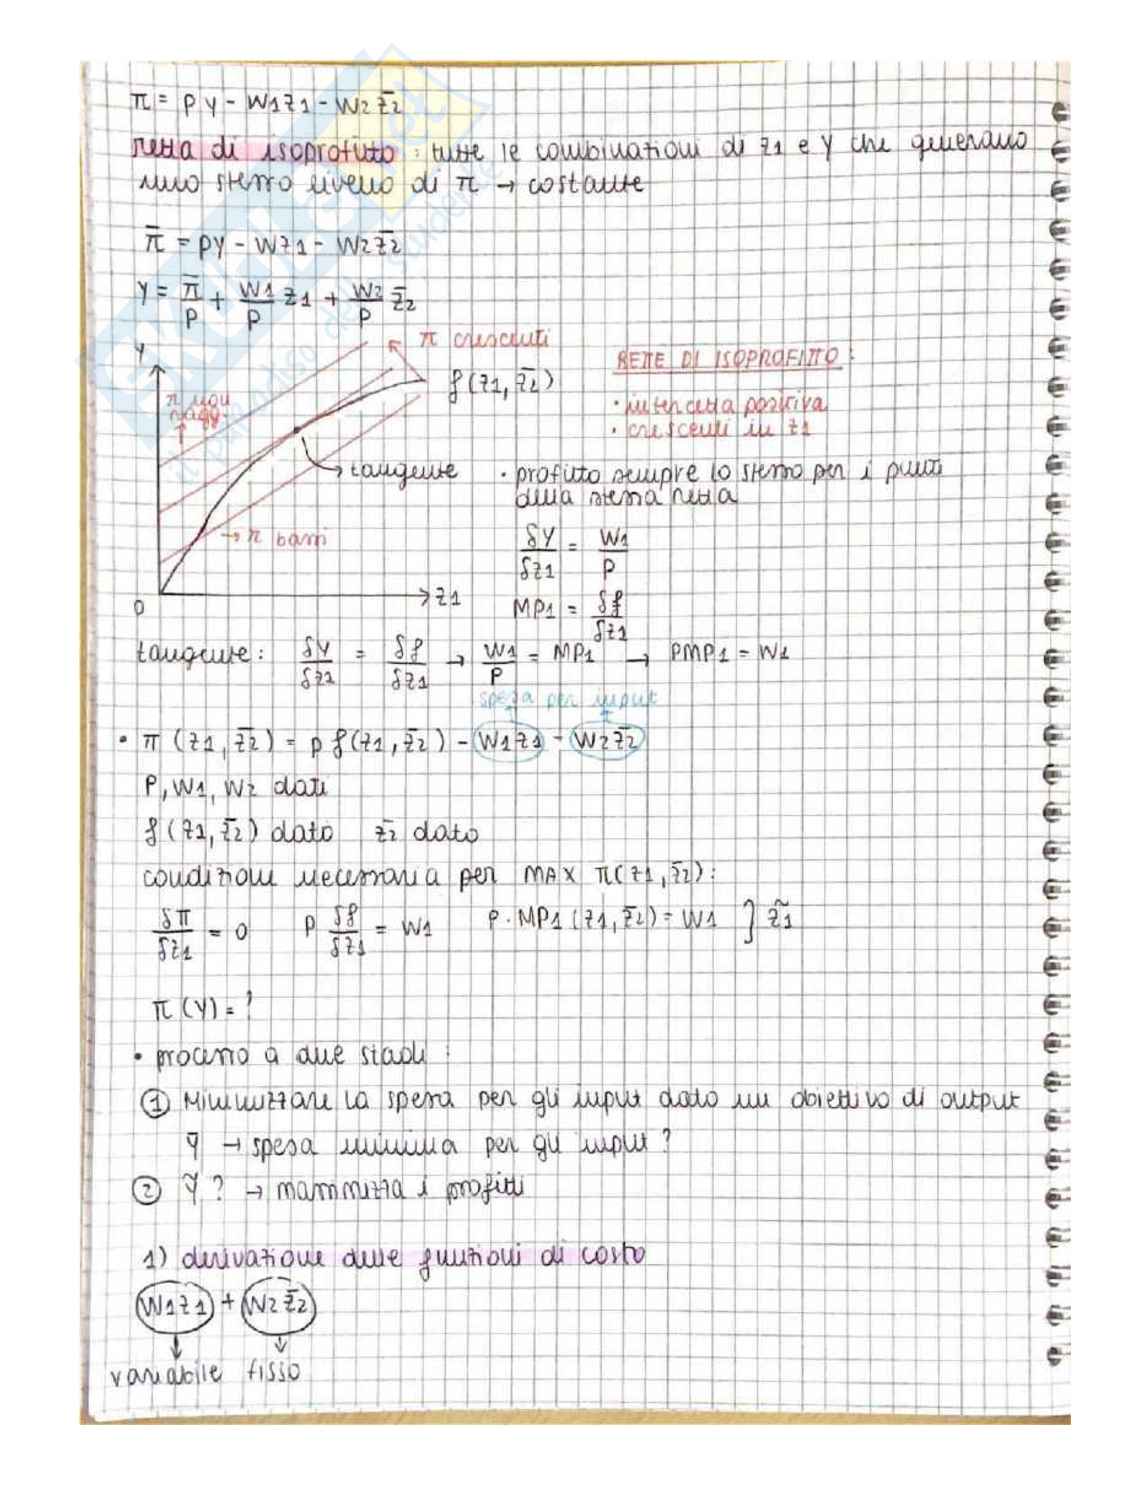 π = py - w1z1 - w2z̄2
retta di isoprofitto : tutte le combinazioni di z1 e y che generano
uno stesso livello di π → costante
π̄ = py - wz1 - w2z̄2
y = π̄/p + w1/p z1 + w2/p z̄2
y
π crescenti
RETTE DI ISOPROFITTO :
f(z1, z̄2)
π non
ragg.
• intercetta positiva
• crescenti in z1
→ tangente
• profitto sempre lo stesso per i punti
della stessa retta
→ π bassi
δy/δz1 = w1/p
0
→ z1
MP1 = δf/δz1
tangente : δy/δz1 = δf/δz1 → w1/p = MP1 → PMP1 = w1
spesa per input
• π (z1, z̄2) = p f(z1, z̄2) - w1z1 - w2z̄2
P, w1, w2 dati
f(z1, z̄2) dato z̄2 dato
condizione necessaria per MAX π(z1, z̄2) :
δπ/δz1 = 0 p δf/δz1 = w1 p · MP1 (z1, z̄2) = w1 } z̃1
π (y) = ?
• processo a due stadi :
① Minimizzare la spesa per gli input dato un obiettivo di output
ȳ → spesa minima per gli input ?
② ỹ ? → massimizza i profitti
1) derivazione delle funzioni di costo
w1z1 + w2z̄2
variabile fisso